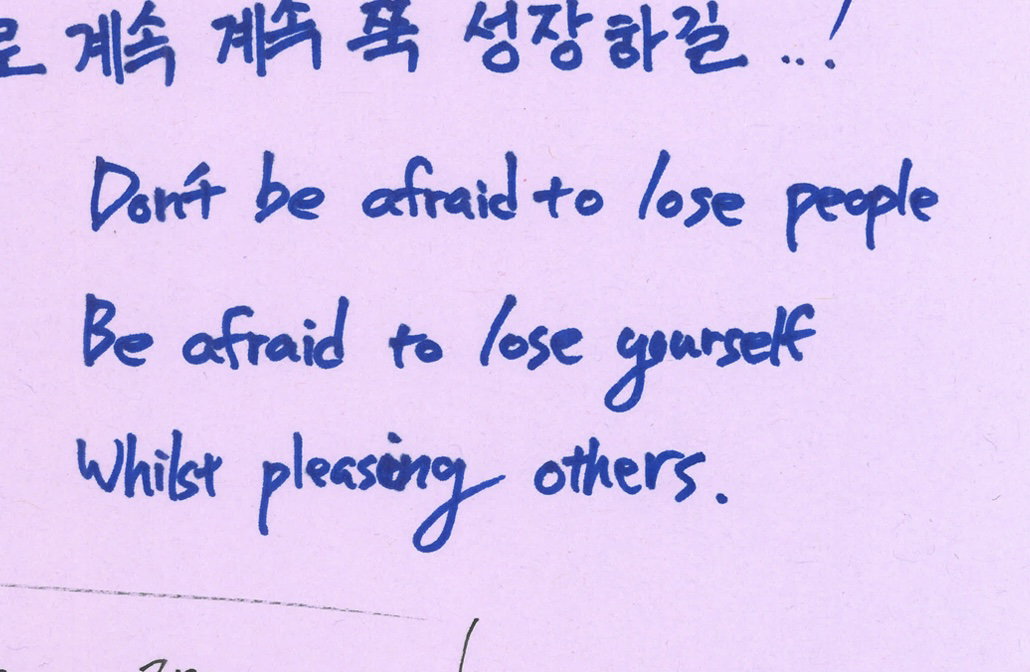 로 계속 계속 쭉 성장하길...!
Don't be afraid to lose people
Be afraid to lose yourself
Whilst pleasing others.